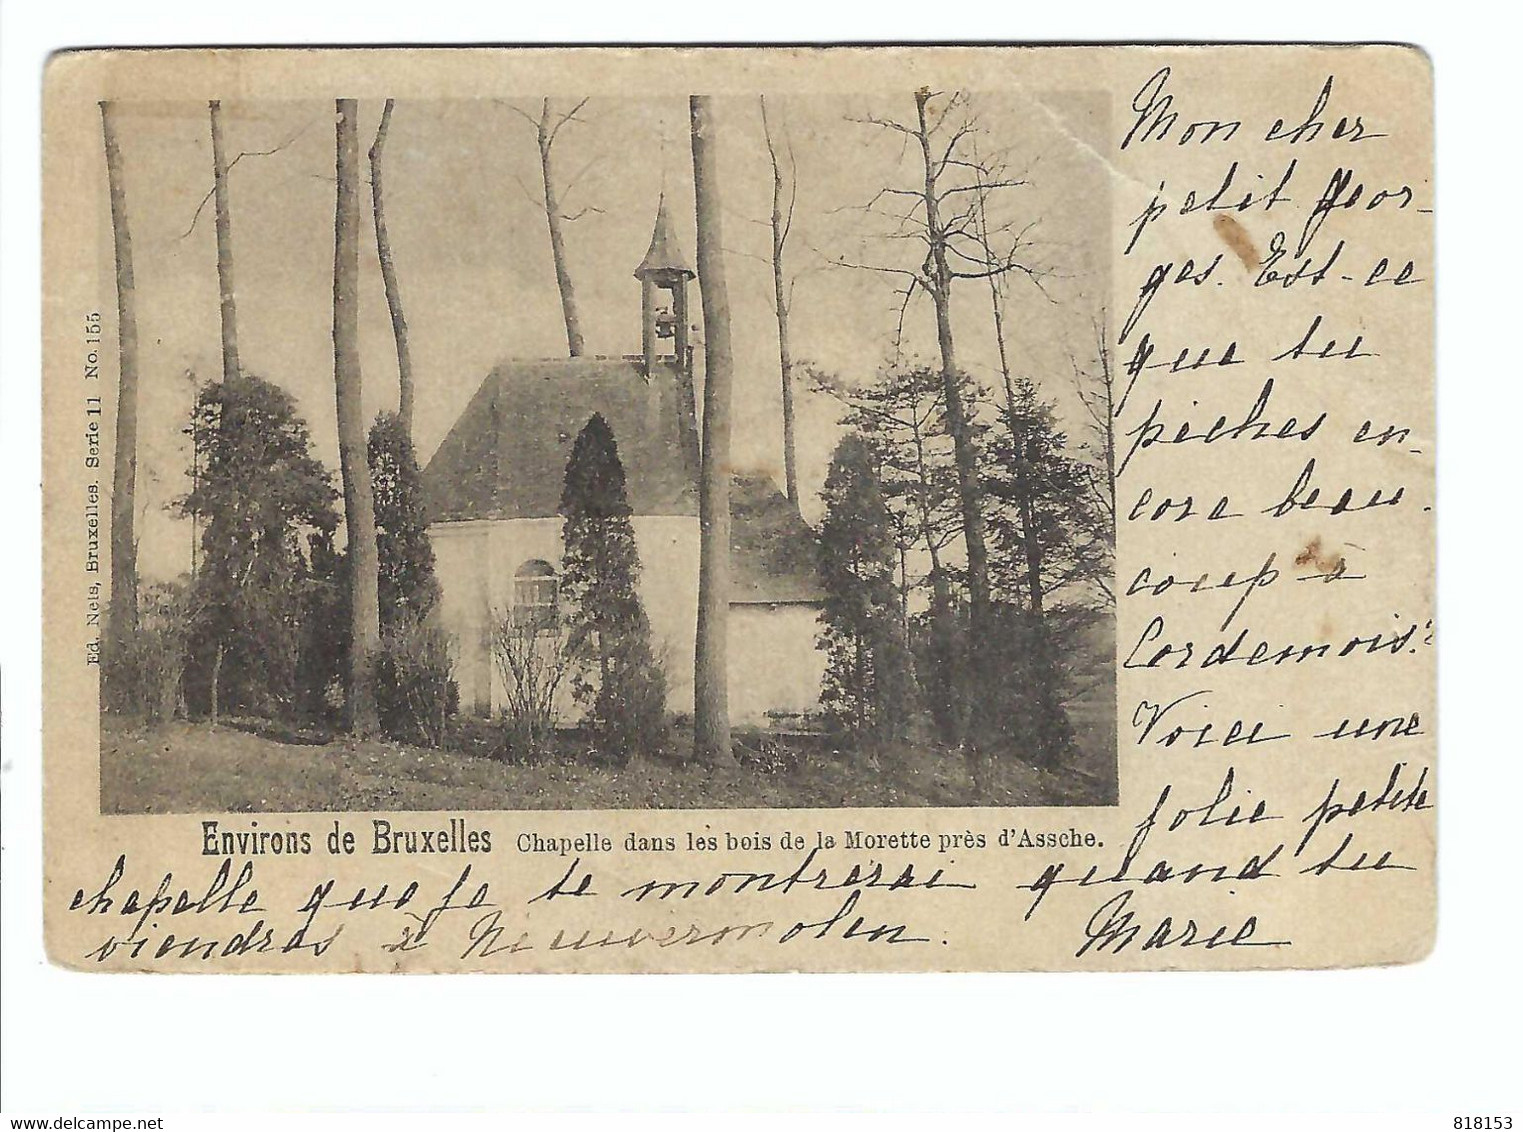 Mon cher
petit Geor-
ges. Est-ce
que tu
pêches en-
core beau-
coup à
Cordemois?
Voici une
jolie petite
chapelle que je te montrerai quand tu
viendras à Nieuwermolen. Marie
Environs de Bruxelles Chapelle dans les bois de la Morette près d'Assche.
Ed. Nels, Bruxelles. Serie 11 No. 155
delcampe.net
818153